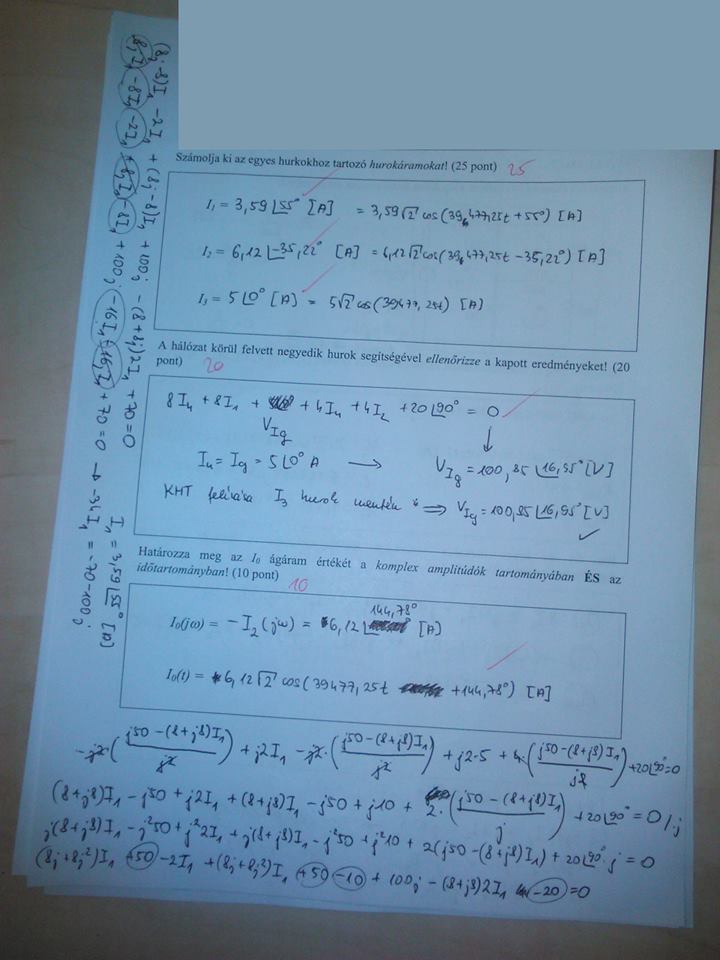 Számolja ki az egyes hurkokhoz tartozó hurokáramokat! (25 pont) 25
I₁ = 3,59 ∠55° [A] = 3,59√2 cos(39477,25t + 55°) [A]
I₂ = 6,12 ∠-35,22° [A] = 6,12√2 cos(39477,25t - 35,22°) [A]
I₃ = 5∠0° [A] = 5√2 cos(39477,25t) [A]
A hálózat körül felvett negyedik hurok segítségével ellenőrizze a kapott eredményeket! (20
pont) 20
8I₄ + 8I₁ + + 4I₄ + 4I₂ + 20∠90° = 0
V_Ig ↓
I₄ = Ig = 5∠0° A → V_Ig = 100,85 ∠16,95° [V]
KHT felírása I₃ hurok mentén ⇒ V_Ig = 100,85 ∠16,95° [V]
Határozza meg az I₀ ágáram értékét a komplex amplitúdók tartományában ÉS az
időtartományban! (10 pont) 10
144,78°
I₀(jω) = -I₂(jω) = 6,12∠ [A]
I₀(t) = 6,12√2 cos(39477,25t +144,78°) [A]
-j2·((j50-(8+j8)I₁)/j2) + j2I₁ - j2·((j50-(8+j8)I₁)/j2) + j2·5 + 4·((j50-(8+j8)I₁)/j2) + 20∠90° = 0
(8+j8)I₁ - j50 + j2I₁ + (8+j8)I₁ - j50 + j10 + 2·((j50-(8+j8)I₁)/j) + 20∠90° = 0 /·j
j(8+j8)I₁ - j²50 + j²2I₁ + j(8+j8)I₁ - j²50 + j²10 + 2(j50-(8+j8)I₁) + 20∠90°·j = 0
(8j+8j²)I₁ +50 -2I₁ + (8j+8j²)I₁ +50 -10 + 100j - (8+j8)2I₁ -20 = 0
(8j-8)I₁ -2I₁ + (8j-8)I₁ + 100j - (8+8j)2I₁ + 70 = 0
8jI₁ -8I₁ -2I₁ +8jI₁ -8I₁ + 100j -16I₁ -16jI₁ + 70 = 0 → -34I₁ = -70-100j
I₁ = 3,59∠55° [A]